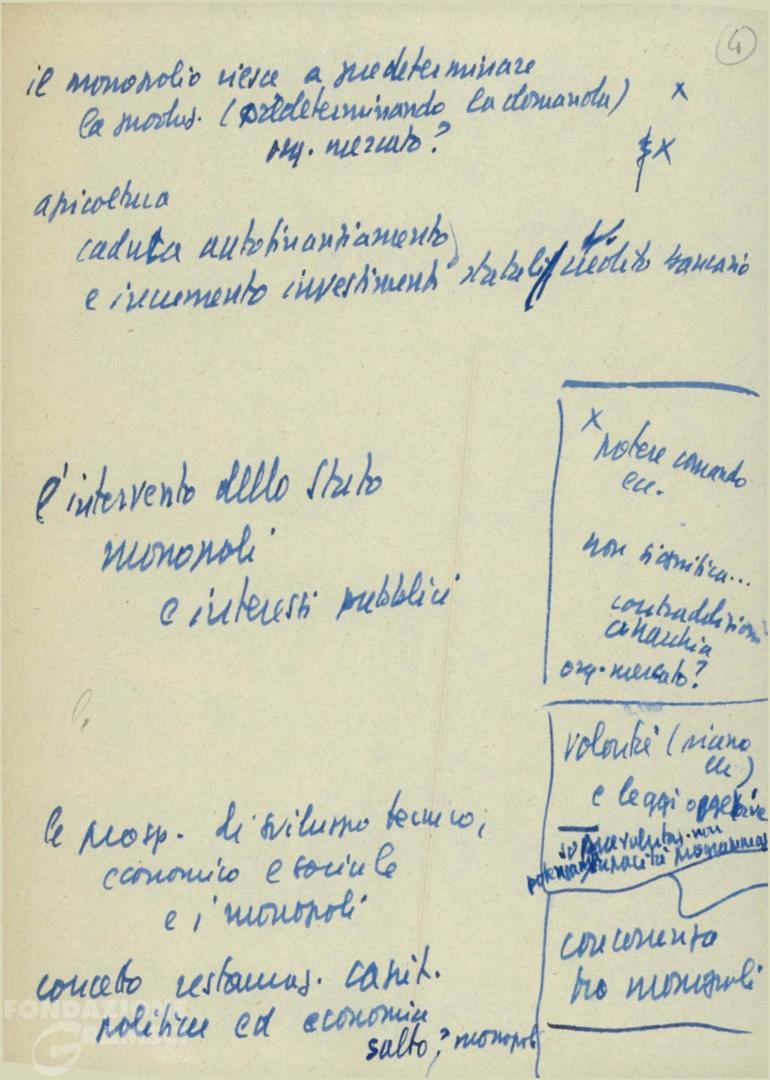 4
il monopolio riesce a predeterminare
la produz. (predeterminando la domanda) x
org. mercato? x
agricoltura
caduta autofinanziamento
e incremento investimenti statali / credito bancario
l'intervento dello Stato
monopoli
e interessi pubblici
le prosp. di sviluppo tecnico,
economico e sociale
e i monopoli
concetto restauraz. capit.
politica ed economia
salto? monopoli
x
potere comando
ecc.
non significa...
contraddizioni
anarchia
org. mercato?
volontà (piano
ecc)
e leggi oggettive
non
programmaz
concorrenza
tra monopoli
FONDAZIONE
GRAMSCI